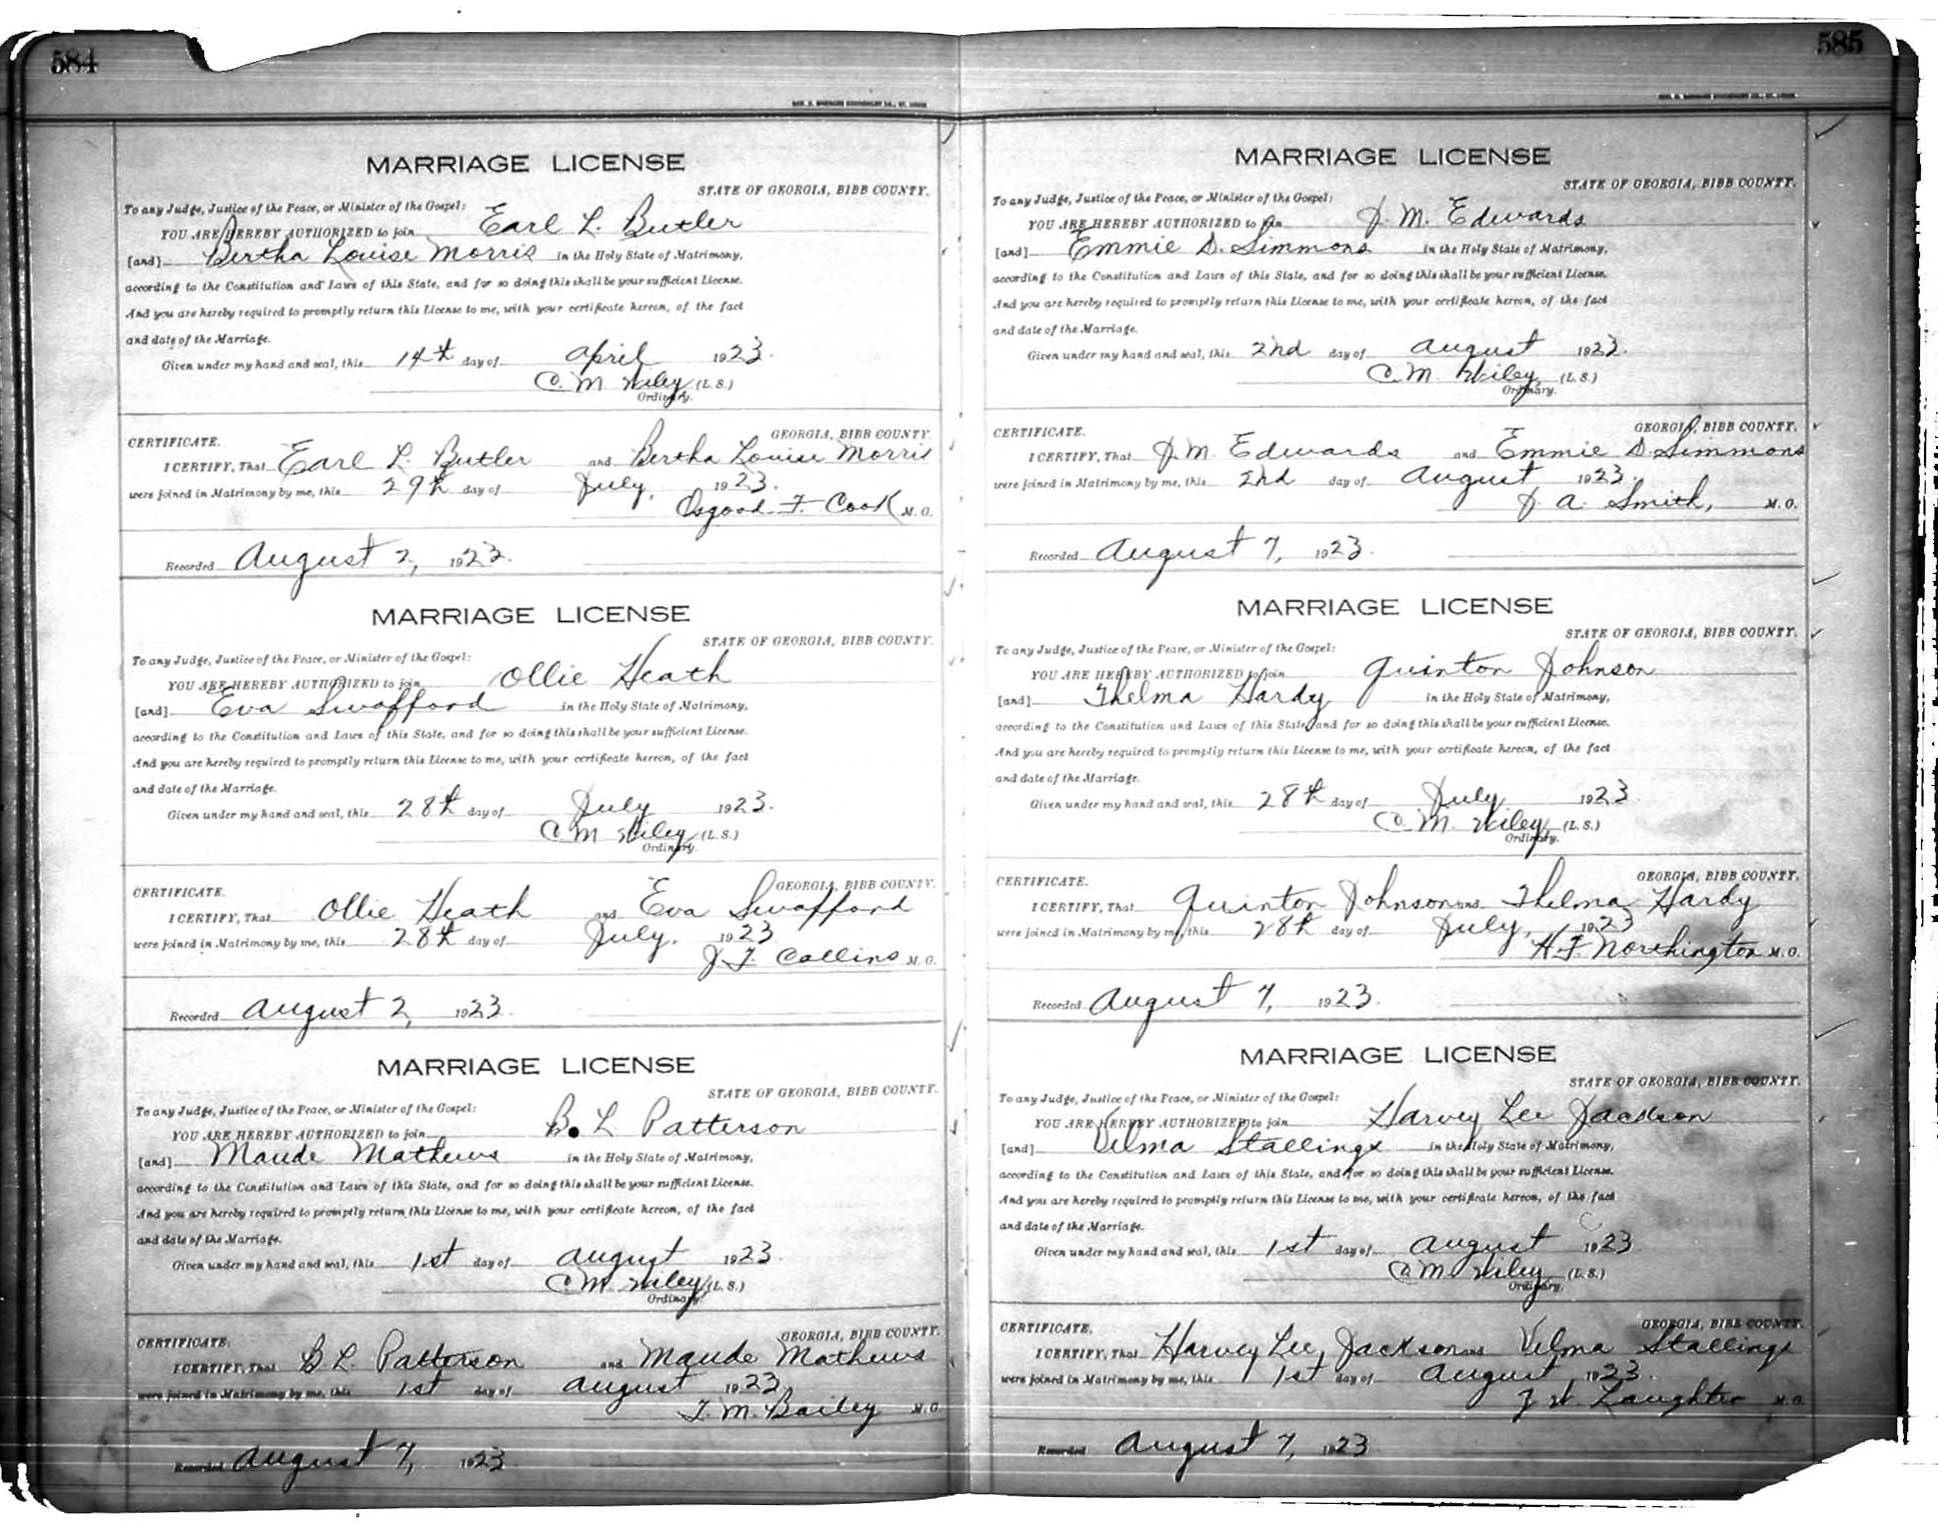 584
MARRIAGE LICENSE
STATE OF GEORGIA, BIBB COUNTY.
To any Judge, Justice of the Peace, or Minister of the Gospel:
YOU ARE HEREBY AUTHORIZED to join Earl L. Butler
[and] Bertha Louise Morris in the Holy State of Matrimony,
according to the Constitution and Laws of this State, and for so doing this shall be your sufficient License.
And you are hereby required to promptly return this License to me, with your certificate hereon, of the fact
and date of the Marriage.
Given under my hand and seal, this 14th day of April 1923.
C. M. Wiley (L. S.)
Ordinary.
CERTIFICATE. GEORGIA, BIBB COUNTY.
I CERTIFY, That Earl L. Butler and Bertha Louise Morris
were joined in Matrimony by me, this 29th day of July, 1923.
Osgood F. Cook M. G.
Recorded August 2, 1923.
MARRIAGE LICENSE
STATE OF GEORGIA, BIBB COUNTY.
To any Judge, Justice of the Peace, or Minister of the Gospel:
YOU ARE HEREBY AUTHORIZED to join Ollie Heath
[and] Eva Swafford in the Holy State of Matrimony,
according to the Constitution and Laws of this State, and for so doing this shall be your sufficient License.
And you are hereby required to promptly return this License to me, with your certificate hereon, of the fact
and date of the Marriage.
Given under my hand and seal, this 28th day of July 1923.
C. M. Wiley (L. S.)
Ordinary.
CERTIFICATE. GEORGIA, BIBB COUNTY.
I CERTIFY, That Ollie Heath and Eva Swafford
were joined in Matrimony by me, this 28th day of July, 1923
J. F. Collins M. G.
Recorded August 2, 1923.
MARRIAGE LICENSE
STATE OF GEORGIA, BIBB COUNTY.
To any Judge, Justice of the Peace, or Minister of the Gospel:
YOU ARE HEREBY AUTHORIZED to join B. L Patterson
[and] Maude Mathews in the Holy State of Matrimony,
according to the Constitution and Laws of this State, and for so doing this shall be your sufficient License.
And you are hereby required to promptly return this License to me, with your certificate hereon, of the fact
and date of the Marriage.
Given under my hand and seal, this 1st day of August 1923.
C. M. Wiley (L. S.)
Ordinary.
CERTIFICATE. GEORGIA, BIBB COUNTY.
I CERTIFY, That B L. Patterson and Maude Mathews
were joined in Matrimony by me, this 1st day of August 1923.
T. M. Bailey M. G.
Recorded August 7, 1923
585
MARRIAGE LICENSE
STATE OF GEORGIA, BIBB COUNTY.
To any Judge, Justice of the Peace, or Minister of the Gospel:
YOU ARE HEREBY AUTHORIZED to join J. M. Edwards
[and] Emmie D. Simmons in the Holy State of Matrimony,
according to the Constitution and Laws of this State, and for so doing this shall be your sufficient License.
And you are hereby required to promptly return this License to me, with your certificate hereon, of the fact
and date of the Marriage.
Given under my hand and seal, this 2nd day of August 1923.
C. M. Wiley (L. S.)
Ordinary.
CERTIFICATE. GEORGIA, BIBB COUNTY.
I CERTIFY, That J. M. Edwards and Emmie D. Simmons
were joined in Matrimony by me, this 2nd day of August 1923.
J. A. Smith, M. G.
Recorded August 7, 1923.
MARRIAGE LICENSE
STATE OF GEORGIA, BIBB COUNTY.
To any Judge, Justice of the Peace, or Minister of the Gospel:
YOU ARE HEREBY AUTHORIZED to join Quinton Johnson
[and] Thelma Hardy in the Holy State of Matrimony,
according to the Constitution and Laws of this State, and for so doing this shall be your sufficient License.
And you are hereby required to promptly return this License to me, with your certificate hereon, of the fact
and date of the Marriage.
Given under my hand and seal, this 28th day of July 1923
C. M. Wiley (L. S.)
Ordinary.
CERTIFICATE. GEORGIA, BIBB COUNTY.
I CERTIFY, That Quinton Johnson and Thelma Hardy
were joined in Matrimony by me, this 28th day of July, 1923
H. F. Northington M. G.
Recorded August 7, 1923.
MARRIAGE LICENSE
STATE OF GEORGIA, BIBB COUNTY.
To any Judge, Justice of the Peace, or Minister of the Gospel:
YOU ARE HEREBY AUTHORIZED to join Harvey Lee Jackson
[and] Velma Stallings in the Holy State of Matrimony,
according to the Constitution and Laws of this State, and for so doing this shall be your sufficient License.
And you are hereby required to promptly return this License to me, with your certificate hereon, of the fact
and date of the Marriage.
Given under my hand and seal, this 1st day of August 1923
C. M. Wiley (L. S.)
Ordinary.
CERTIFICATE. GEORGIA, BIBB COUNTY.
I CERTIFY, That Harvey Lee Jackson and Velma Stallings
were joined in Matrimony by me, this 1st day of August, 1923.
Laughter M. G.
Recorded August 7, 1923